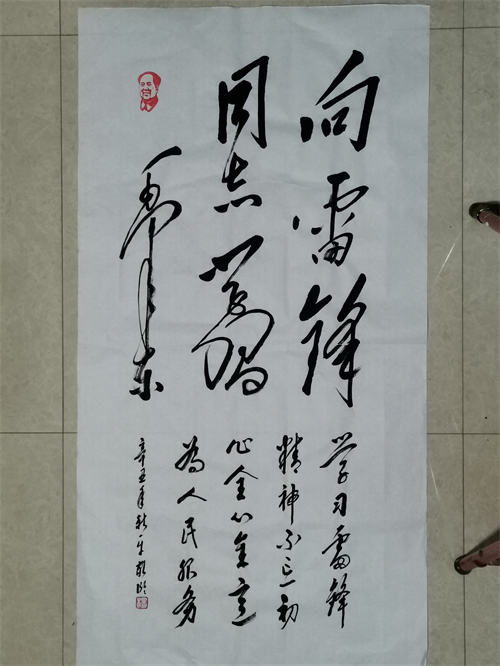 向雷锋
同志学习
毛泽东
学习雷锋
精神不忘初
心全心全意
為人民服务
辛丑年秋